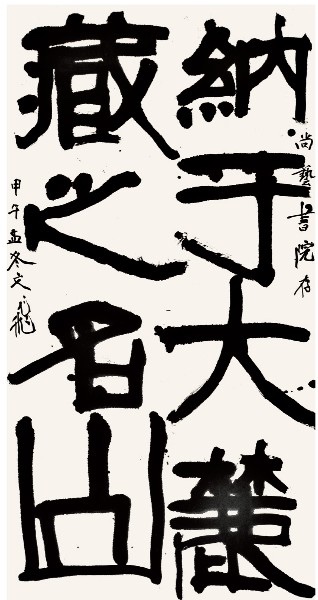 尚藝書院存
納于大麓
藏之名山
甲午孟冬文